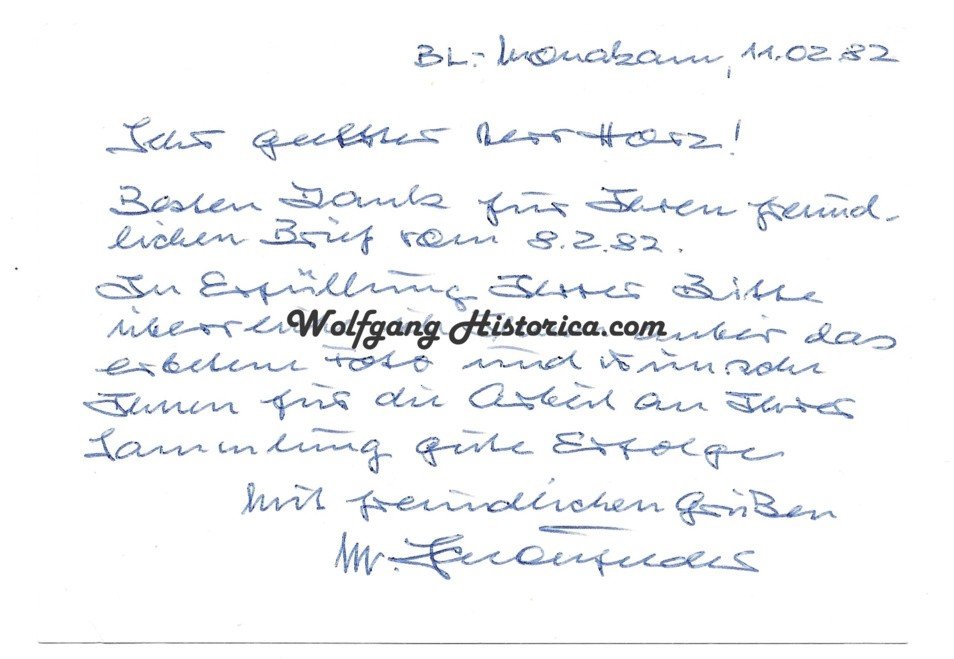 BL.-Monakam, 11.02.82
Sehr geehrter Herr Harz!
Besten Dank für Ihren freund-
lichen Brief vom 8.2.82.
In Erfüllung Ihrer Bitte
Wolfgang Historica.com
anbei das
erbetene Foto und wünsche
Ihnen für die Arbeit an Ihrer
Sammlung gute Erfolge
Mit freundlichen Grüßen